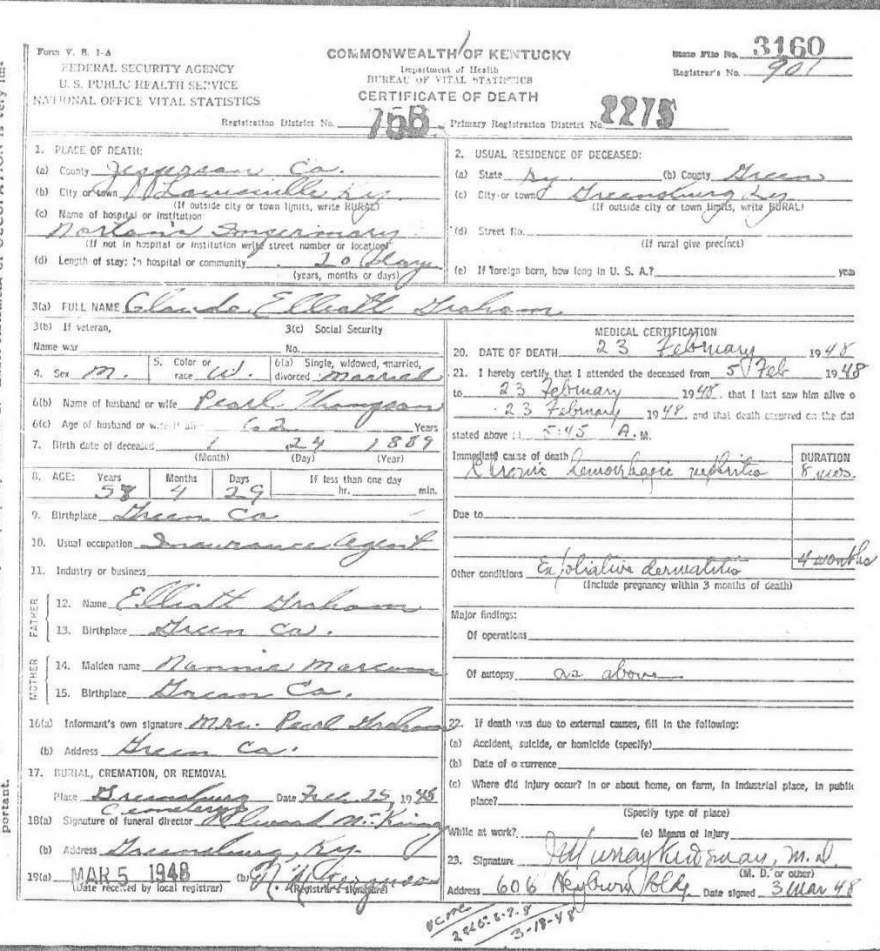 Form V. S. 1-A
FEDERAL SECURITY AGENCY
U. S. PUBLIC HEALTH SERVICE
NATIONAL OFFICE VITAL STATISTICS
COMMONWEALTH OF KENTUCKY
Department of Health
BUREAU OF VITAL STATISTICS
CERTIFICATE OF DEATH
State File No. 3160
Registrar's No. 901
Registration District No. 755 Primary Registration District No. 2275
1. PLACE OF DEATH:
(a) County Jefferson Co.
(b) City or town Louisville Ky
(If outside city or town limits, write RURAL)
(c) Name of hospital or institution:
(If not in hospital or institution write street number or location)
(d) Length of stay: In hospital or community 20 days
(years, months or days)
2. USUAL RESIDENCE OF DECEASED:
(a) State Ky. (b) County Green
(c) City or town Greensburg Ky
(If outside city or town limits, write RURAL)
(d) Street No.
(If rural give precinct)
(e) If foreign born, how long in U. S. A.? years
3(a) FULL NAME Elliott Graham
3(b) If veteran,
Name war
3(c) Social Security
No.
4. Sex M. 5. Color or race W. 6(a) Single, widowed, married, divorced Married
6(b) Name of husband or wife Pearl Thompson
6(c) Age of husband or wife if alive 62 Years
7. Birth date of deceased 24 1889
(Month) (Day) (Year)
8. AGE: Years Months Days If less than one day
58 4 29 hr. min.
9. Birthplace Green Co
10. Usual occupation Insurance Agent
11. Industry or business
FATHER
12. Name Elliott Graham
13. Birthplace Green Co.
MOTHER
14. Maiden name Nannie Marcum
15. Birthplace Green Co.
16(a) Informant's own signature Mrs. Pearl Graham
(b) Address Green Co.
17. BURIAL, CREMATION, OR REMOVAL
Place Greensburg Cemetery Date Feb. 25, 1948
18(a) Signature of funeral director
(b) Address Greensburg, Ky.
19(a) MAR 5 1948 (b)
(Date received by local registrar) (Registrar's signature)
MEDICAL CERTIFICATION
20. DATE OF DEATH 23 February 1948
21. I hereby certify that I attended the deceased from 5 Feb 1948
to 23 February 1948, that I last saw him alive o
23 February 1948, and that death occurred on the dat
stated above at 5:45 A. M.
Immediate cause of death DURATION
Chronic hemorrhagic nephritis 8 yrs.
Due to
4 months
Other conditions Exfoliative dermatitis
(Include pregnancy within 3 months of death)
Major findings:
Of operations
Of autopsy as above
22. If death was due to external causes, fill in the following:
(a) Accident, suicide, or homicide (specify)
(b) Date of occurrence
(c) Where did injury occur? In or about home, on farm, in industrial place, in public
place?
(Specify type of place)
While at work? (e) Means of injury
23. Signature M.D.
(M. D. or other)
Address 606 Heyburn Bldg. Date signed 3 Mar 48
3-18-48
portant.